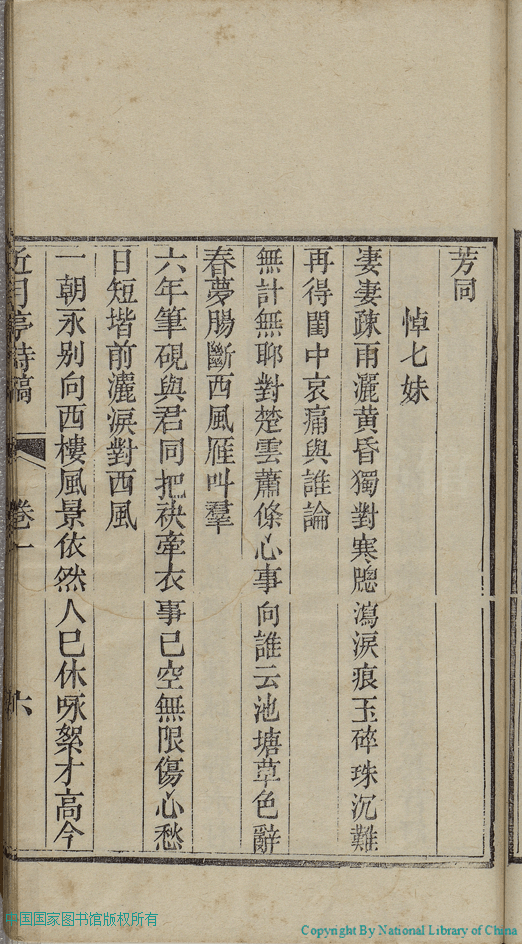 芳同
悼七妹
淒淒疎雨灑黃昏獨對寒牕瀉淚痕玉碎珠沉難
再得閨中哀痛與誰論
無計無聊對楚雲蕭條心事向誰云池塘草色辭
春夢腸斷西風雁叫羣
六年筆硯與君同把袂牽衣事已空無限傷心愁
日短堦前灑淚對西風
一朝永別向西樓風景依然人已休咏絮才高今
近月亭詩稿
卷一
六
中国国家图书馆版权所有
Copyright By National Library of China